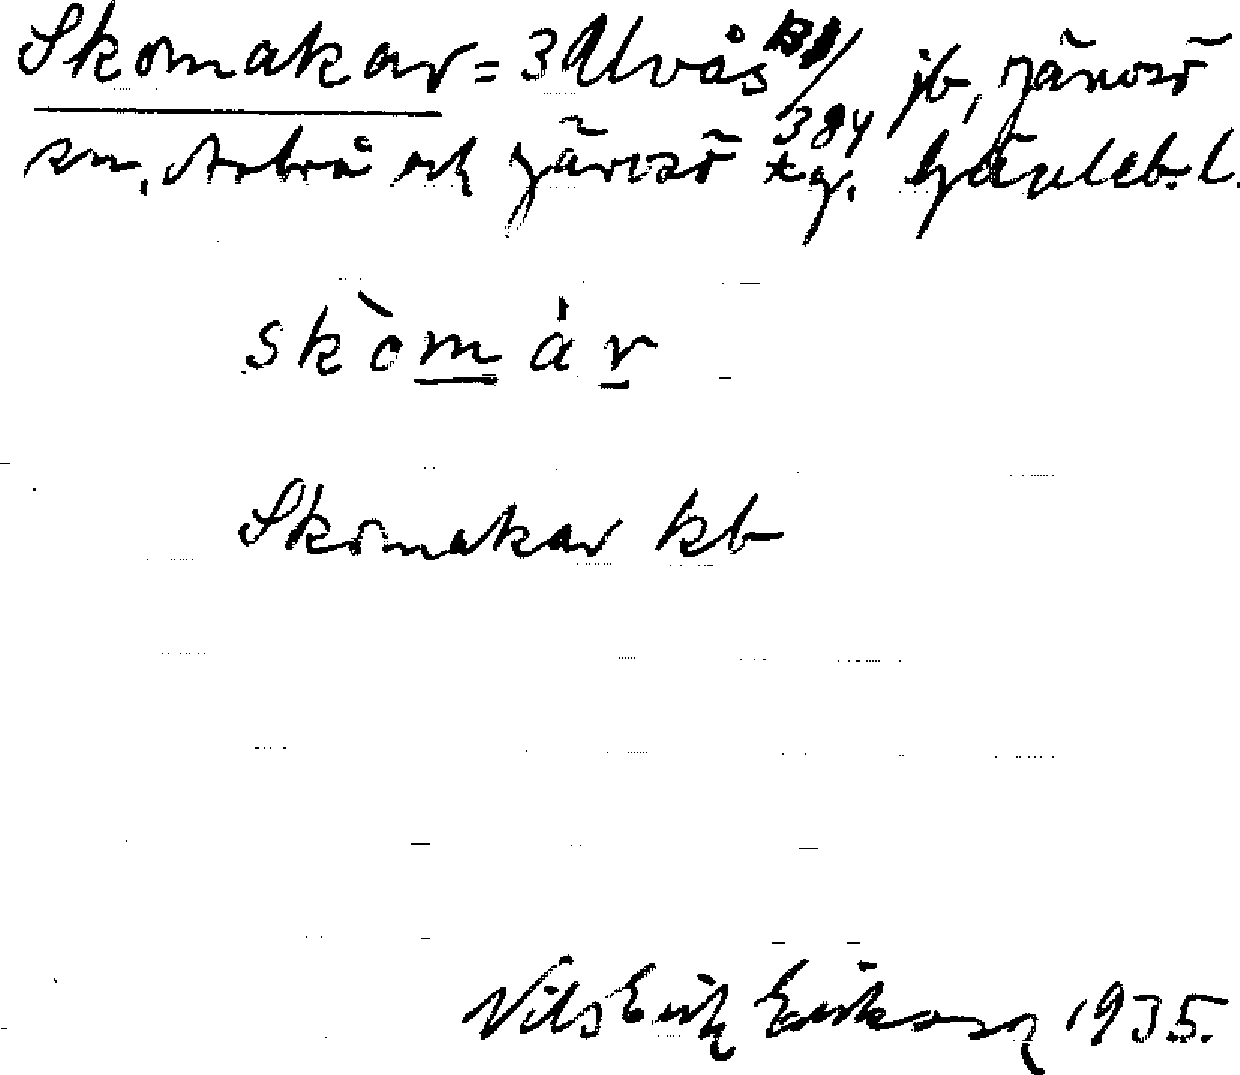 Skomakar = 3 Ulvås B1/384 jb, Järvsö
sn, Arbrå och Järvsö tg. Gävleb. l.
skòmár
Skomakar kb
Nils Erik Eriksson 1935.